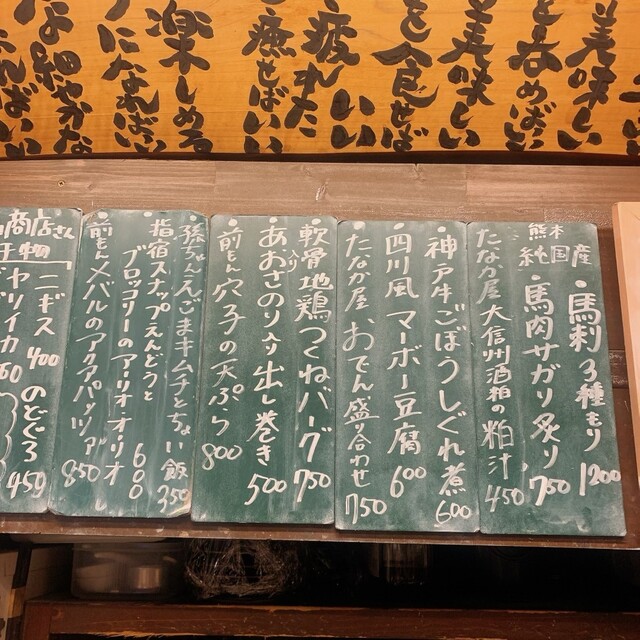 美味しい
と呑めばいい
美味しい
を食せば
いい
疲れた
癒せばいい
楽しめる
になればいい
な細やかな
なればいい
熊本 純国産
馬刺3種もり 1200
馬肉サガリ炙り 750
たなか屋 大信州酒粕の粕汁 450
神戸牛ごぼうしぐれ煮 600
四川風マーボー豆腐 600
たなか屋おでん盛り合わせ 750
軟骨入り地鶏つくねバーグ 750
あおさのり入り出し巻き 500
前もん穴子の天ぷら 800
張ちゃんえごまキムチとちょい飯 350
指宿スナップえんどうと
ブロッコリーのアーリオオーリオ 600
前もんメバルのアクアパッツァ 850
商店さん
干物
ニギス 400
のどぐろ 450
ヤリイカ